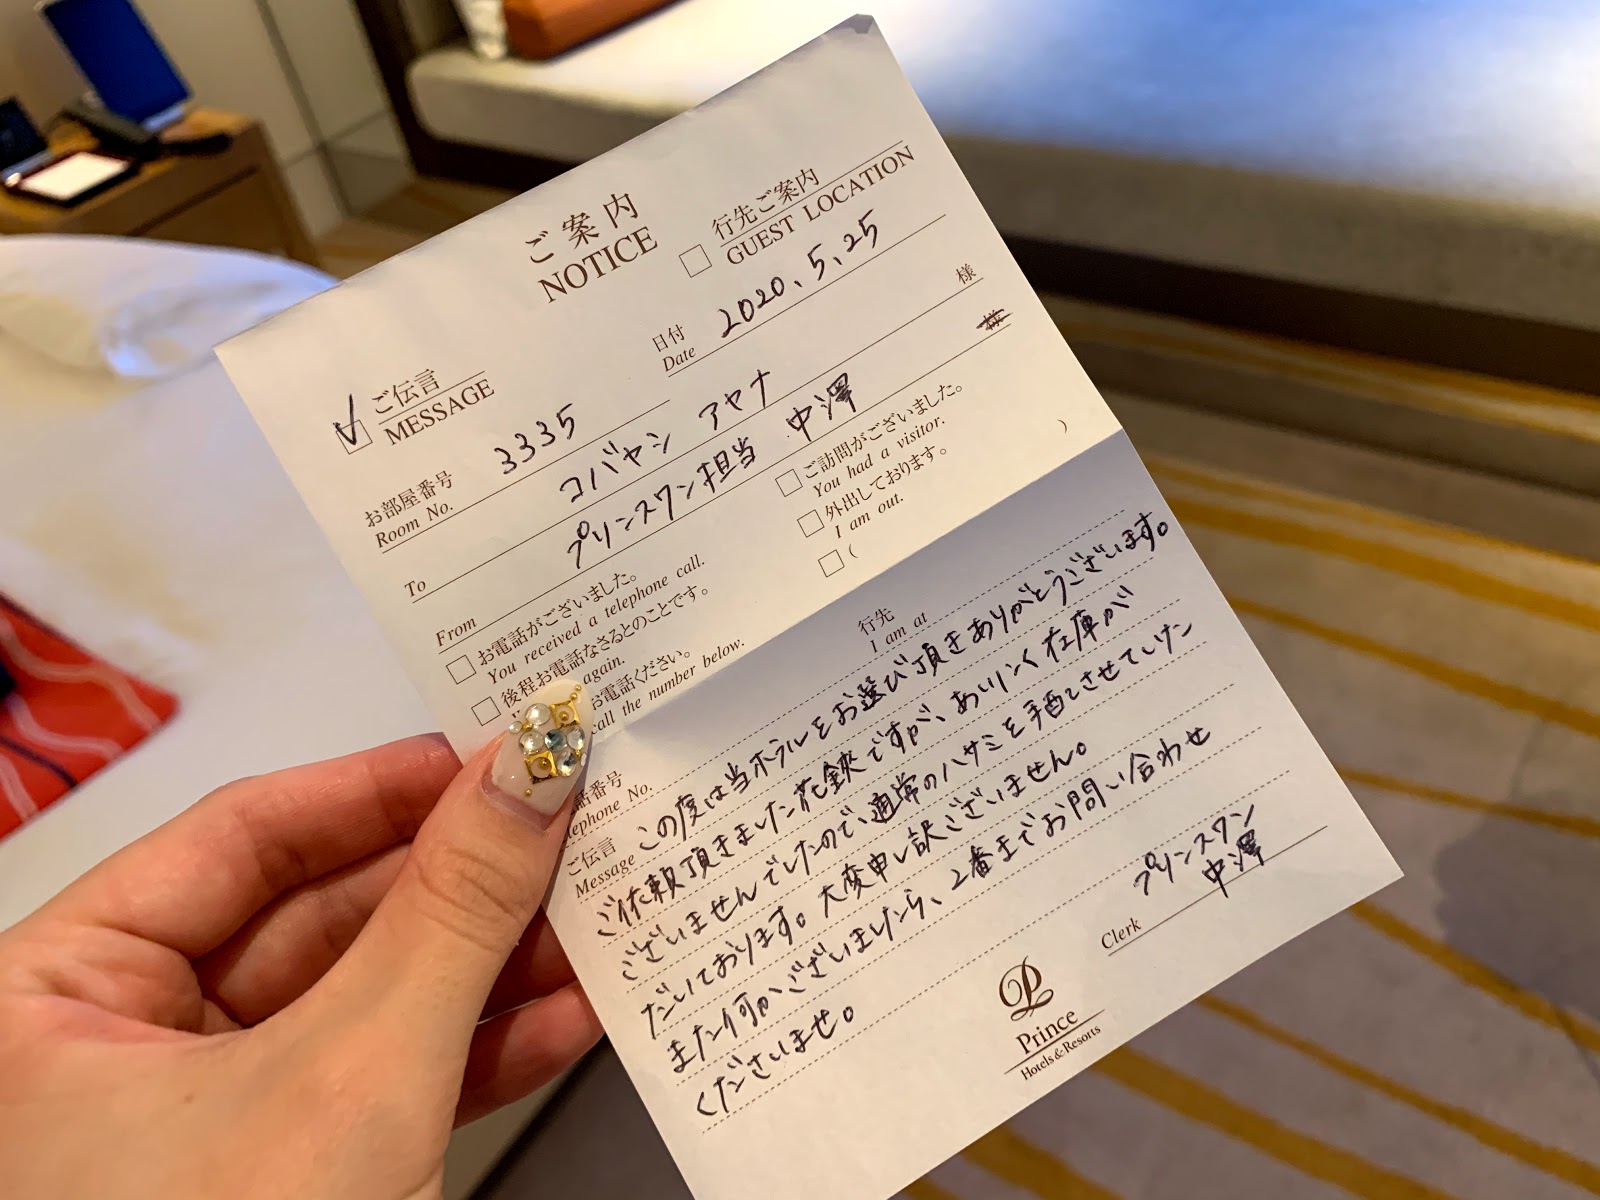 ご案内
NOTICE
行先ご案内
GUEST LOCATION
ご伝言
MESSAGE
日付
Date
2020.5.25
お部屋番号
Room No.
3335
To
コバヤシ アヤナ
様
From
プリンスワン担当 中澤
お電話がございました。
You received a telephone call.
後程お電話なさるとのことです。
again.
お電話ください。
call the number below.
ご訪問がございました。
You had a visitor.
外出しております。
I am out.
( )
行先
I am at
話番号
lephone No.
ご伝言
Message
この度は当ホテルをお選び頂きありがとうございます。
ご依頼頂きました花鋏ですが、あいにく在庫が
ございませんでしたので通常のハサミを手配させていた
だいております。大変申し訳ございません。
また何かございましたら、2番までお問い合わせ
くださいませ。
Clerk
プリンスワン
中澤
Prince
Hotels & Resorts